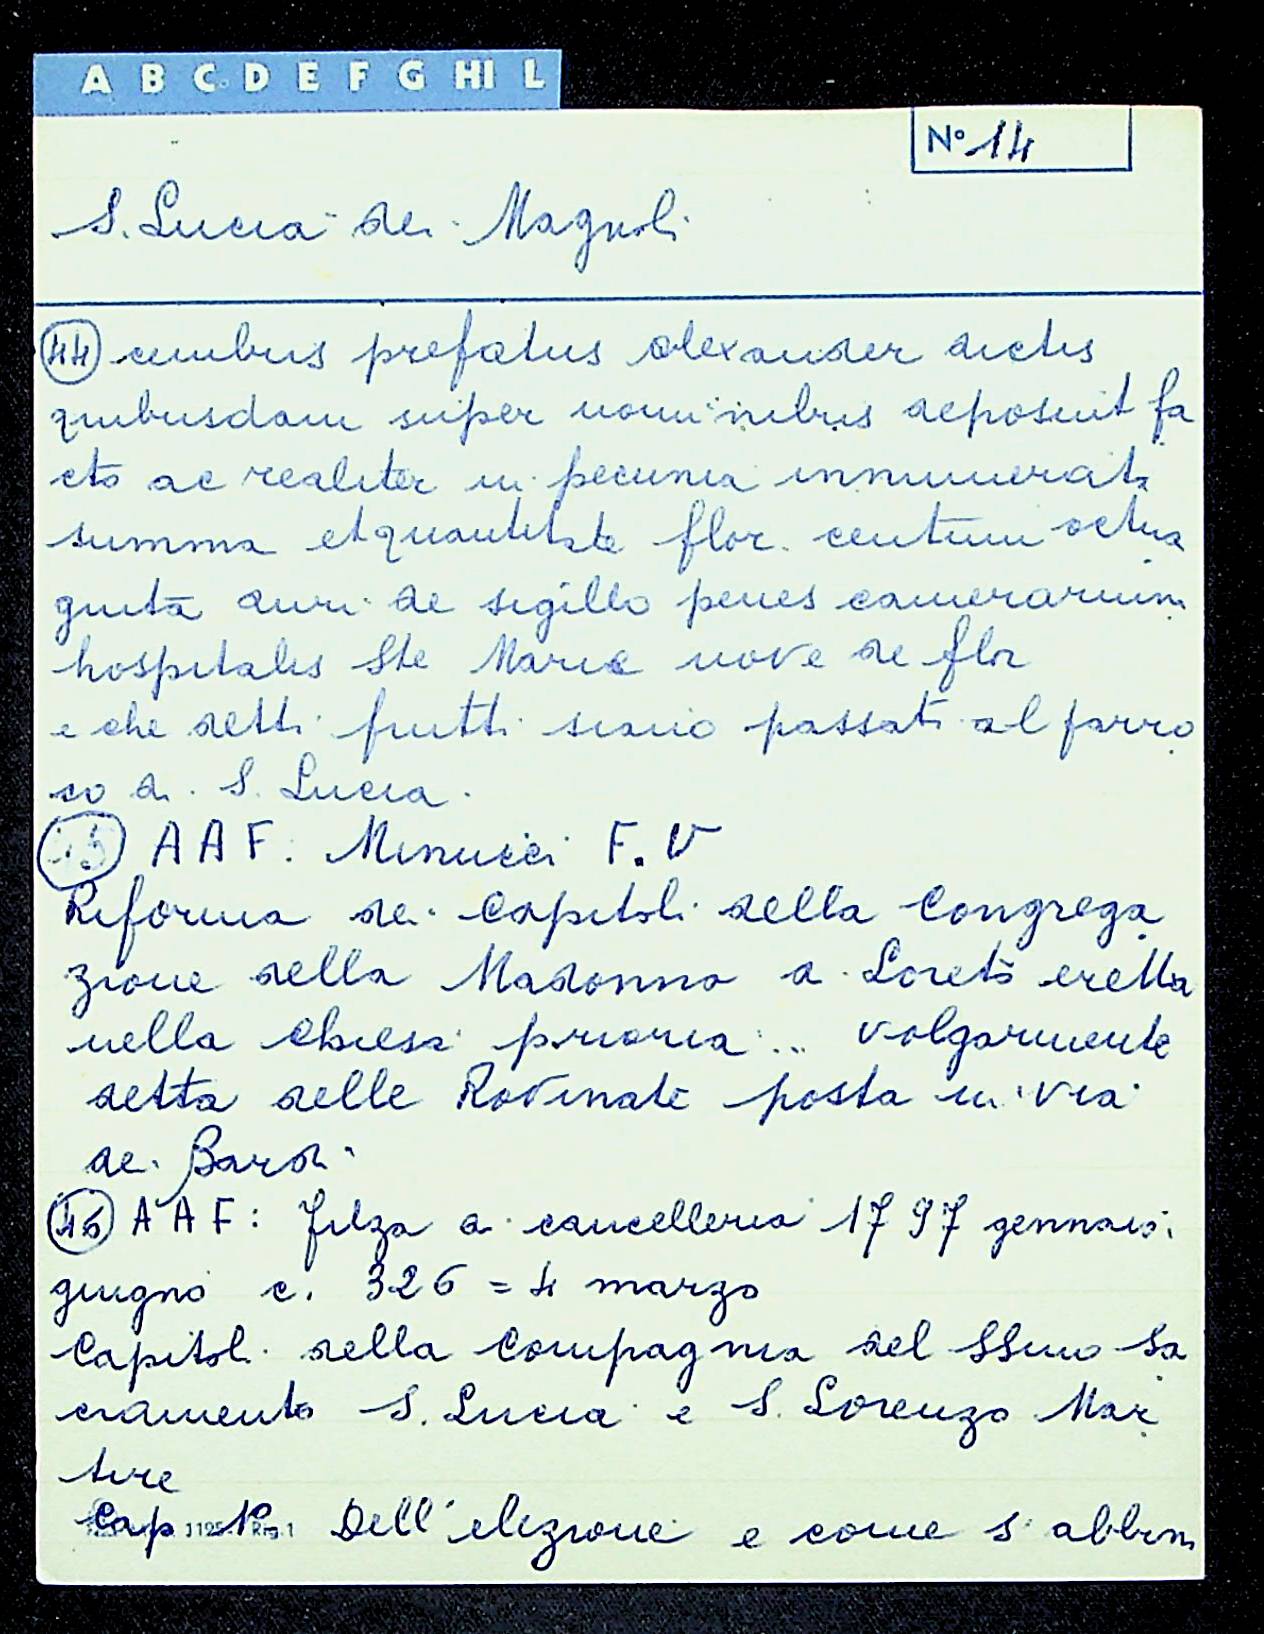 A B C D E F G HI L
N° 14
S. Lucia dei Magnoli
44 cumbus prefatus Alexander dictis
quibusdam super nominibus deposuit fa
cto ac realiter in pecunia innumerata
summa et quantitate flor. centum octua
ginta auri de sigillo penes camerarium
hospitalis Ste Marie nove de flor
e che detti frutti siano passati al parro
co di S. Lucia.
45 A A F. Minucci F. V
Riforma dei Capitoli della Congrega
zione della Madonna di Loreto eretta
nella Chiesa prioria ... volgarmente
detta delle Rovinate posta in via
dei Bardi
46 A A F: filza di cancelleria 1797 gennaio
giugno c. 326 = 4 marzo
Capitoli della Compagnia del SSmo Sa
cramento S. Lucia e S. Lorenzo Mar
tire
Cap 1° Dell'elezione e come s'abbin
1125 Rig. 1